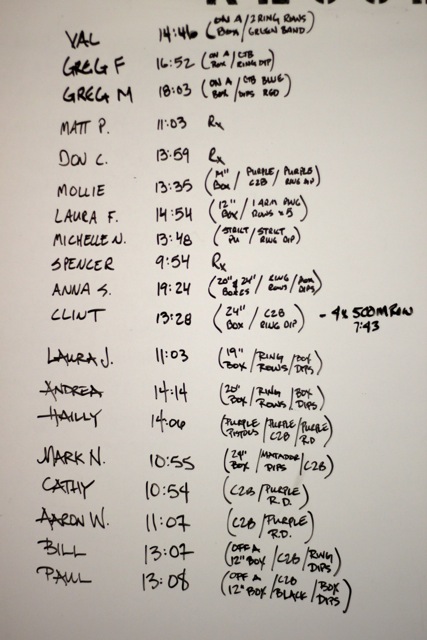 VAL 14:46 (ON A BOX / 2 RING ROWS GREEN BAND)
GREG F 16:52 (ON A BOX / CTB RING DIP)
GREG M 18:03 (ON A BOX / CTB BLUE DIPS RED)
MATT P. 11:03 Rx
DON C. 13:59 Rx
MOLLIE 13:35 (BOX / PURPLE C2B / PURPLE RING DIP)
LAURA F. 14:54 (12" BOX / 1 ARM RING ROWS x5)
MICHELLE N. 13:48 (STRICT PU / STRICT RING DIP)
SPENCER 9:54 Rx
ANNA S. 19:24 (20" & 24" BOXES / RING ROWS / BOX DIPS)
CLINT 13:28 (24" BOX / C2B RING DIP) - 4x 500M ROW 7:43
LAURA J. 11:03 (19" BOX / RING ROWS / BOX DIPS)
ANDREA 14:14 (20" BOX / RING ROWS / BOX DIPS)
HAILLY 14:06 (PURPLE PISTOLS / PURPLE C2B / PURPLE R.D)
MARK N. 10:55 (24" BOX / MATADOR DIPS / C2B)
CATHY 10:54 (C2B / PURPLE R.D.)
AARON W. 11:07 (C2B / PURPLE R.D.)
BILL 13:07 (OFF A 12" BOX / C2B / RING DIPS)
PAUL 13:08 (OFF A 12" BOX / C2B BLACK / BOX DIPS)